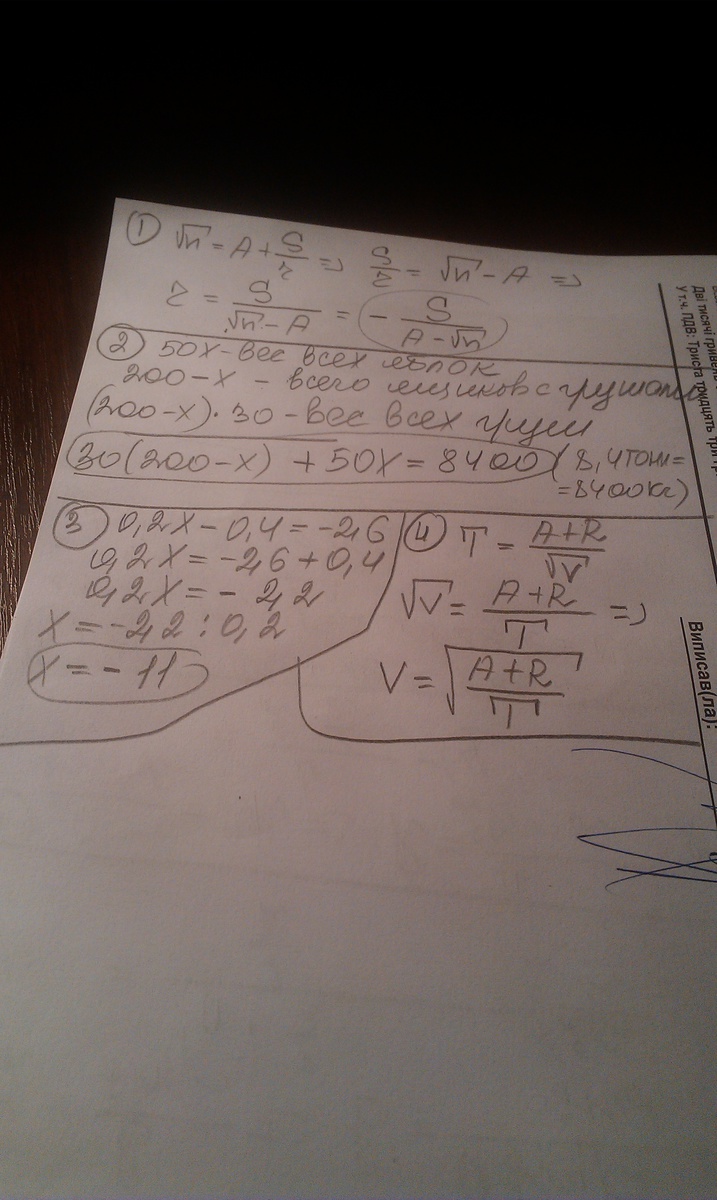 1 √n = A + S/r => S/r = √n - A =>
r = S/(√n - A) = - S/(A - √n)
2 50x - вес всех яблок
200 - x - всего ящиков с грушами
(200 - x) · 30 - вес всех груш
30(200 - x) + 50x = 8400 (8,4 тонн =
= 8400 кг)
3 0,2x - 0,4 = -2,6
0,2x = -2,6 + 0,4
0,2x = - 2,2
x = -2,2 : 0,2
x = - 11
4 T = (A+R)/√V
√V = (A+R)/T =>
V = √((A+R)/T)
Дві тисячі гривень
У т.ч. ПДВ: Триста тридцять три
Виписав(ла):